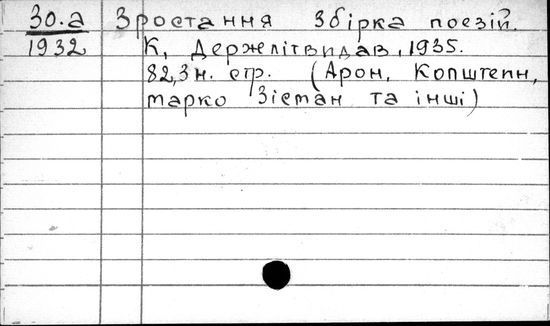 30.а Зростання Збірка поезій.
1932 К, Держлітвидав, 1935.
82,3н. стр. (Арон, Копштепн,
марко Зісман та інші)